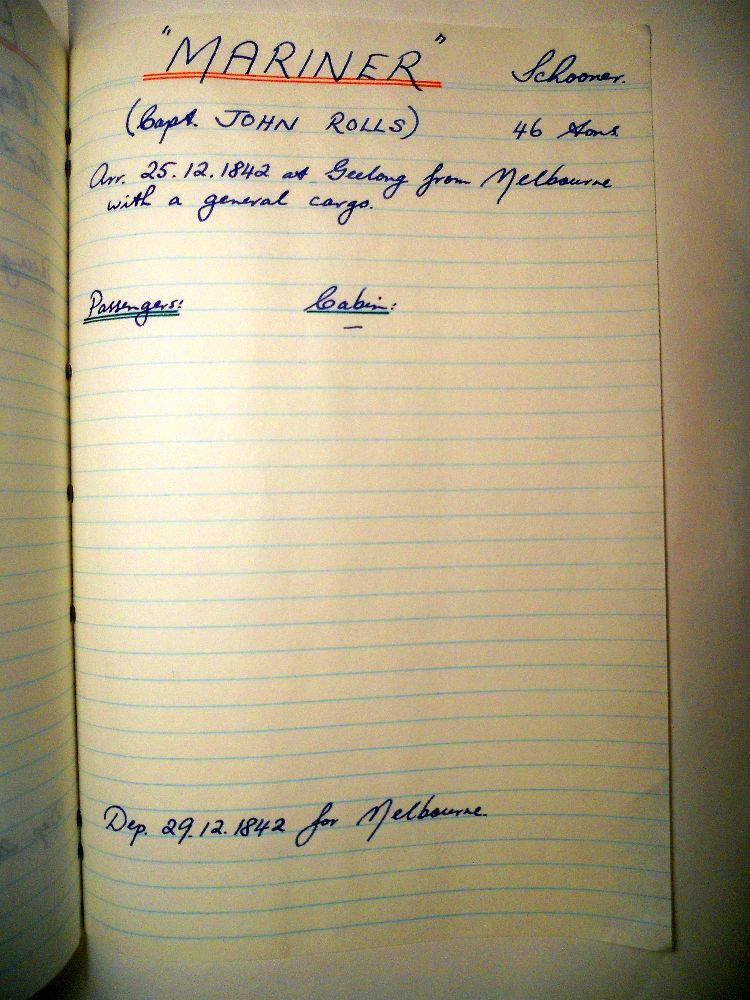 "MARINER" Schooner.
(Capt. JOHN ROLLS) 46 tons
Arr. 25.12.1842 at Geelong from Melbourne
with a general cargo.
Passengers: Cabin:
—
Dep. 29.12.1842 for Melbourne.